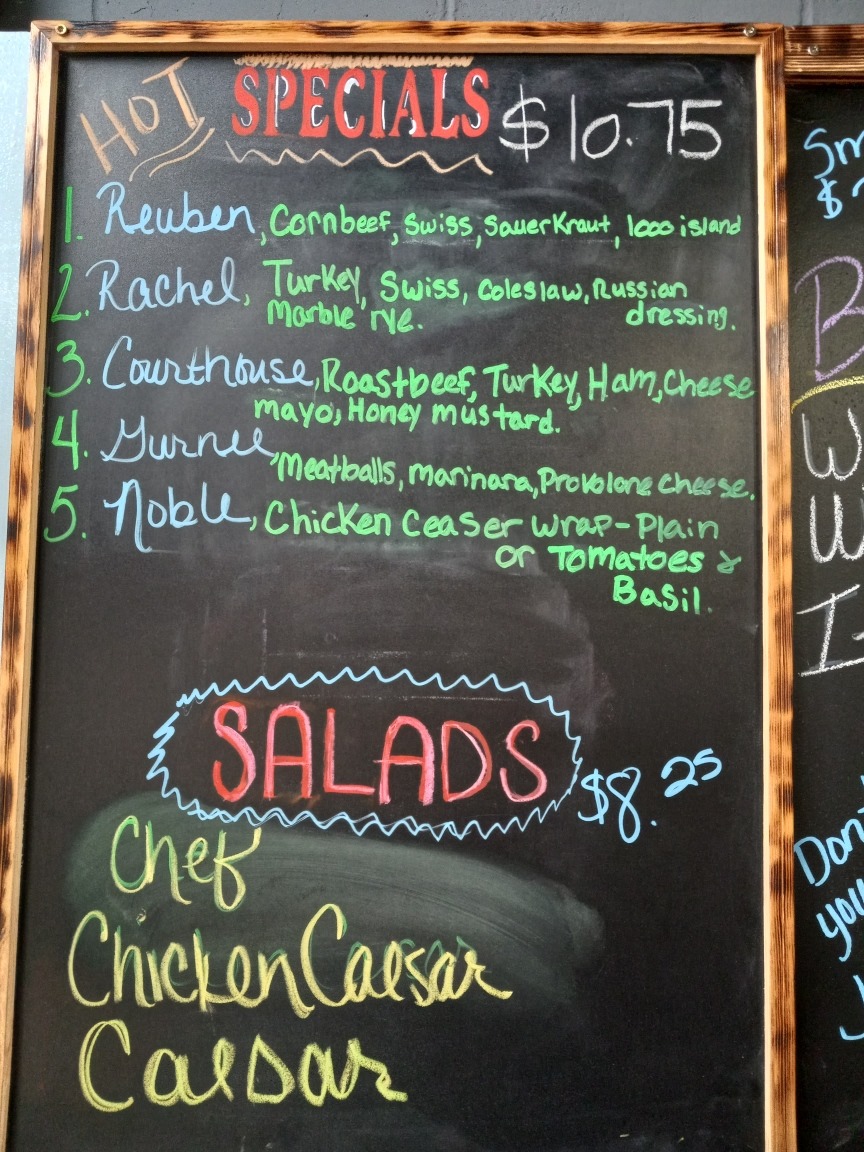 HOT SPECIALS $10.75
1. Reuben, Cornbeef, Swiss, SauerKraut, 1000 island
2. Rachel, Turkey, Swiss, Coleslaw, Russian
Marble rye. dressing.
3. Courthouse, Roastbeef, Turkey, Ham, Cheese
mayo, Honey mustard.
4. Gurnee,
Meatballs, marinara, Provolone cheese.
5. Noble, Chicken Ceaser wrap-Plain
or Tomatoes &
Basil.
SALADS $8.25
Chef
Chicken Caesar
Caesar
Sm
$
B
W
W
I
Don
you